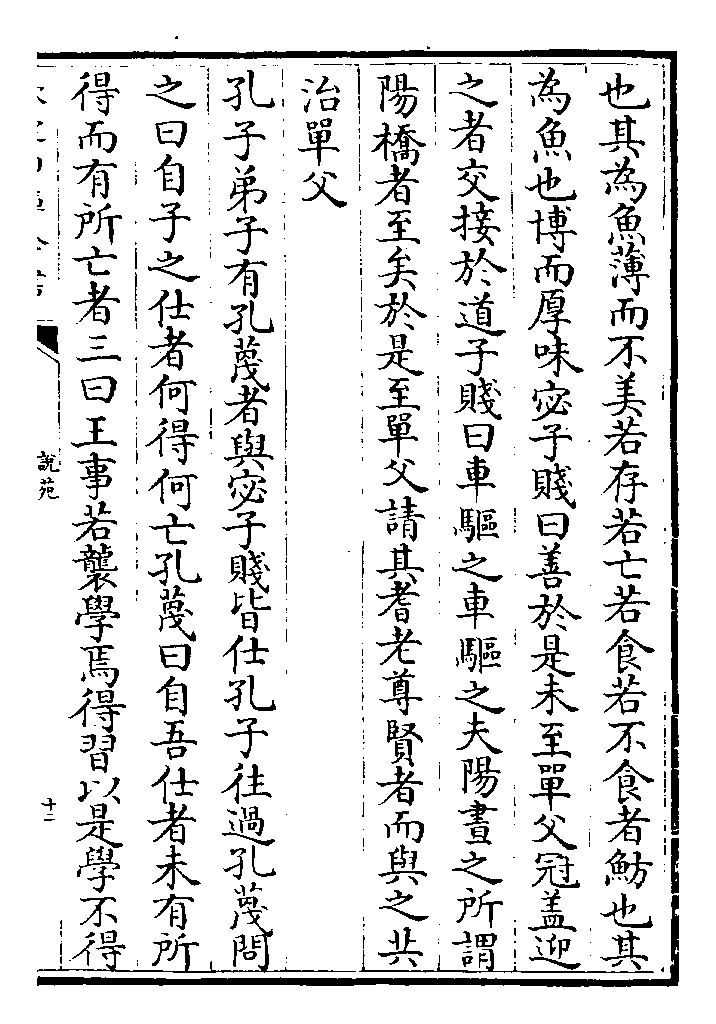 也其為魚薄而不美若存若亡若食若不食者魴也其
為魚也博而厚味宓子賤曰善於是未至單父冠盖迎
之者交接於道子賤曰車驅之車驅之夫陽晝之所謂
陽橋者至矣於是至單父請其耆老尊賢者而與之共
治單父
孔子弟子有孔蔑者與宓子賤皆仕孔子往過孔蔑問
之曰自子之仕者何得何亡孔蔑曰自吾仕者未有所
得而有所亡者三曰王事若襲學焉得習以是學不得
說苑
十二